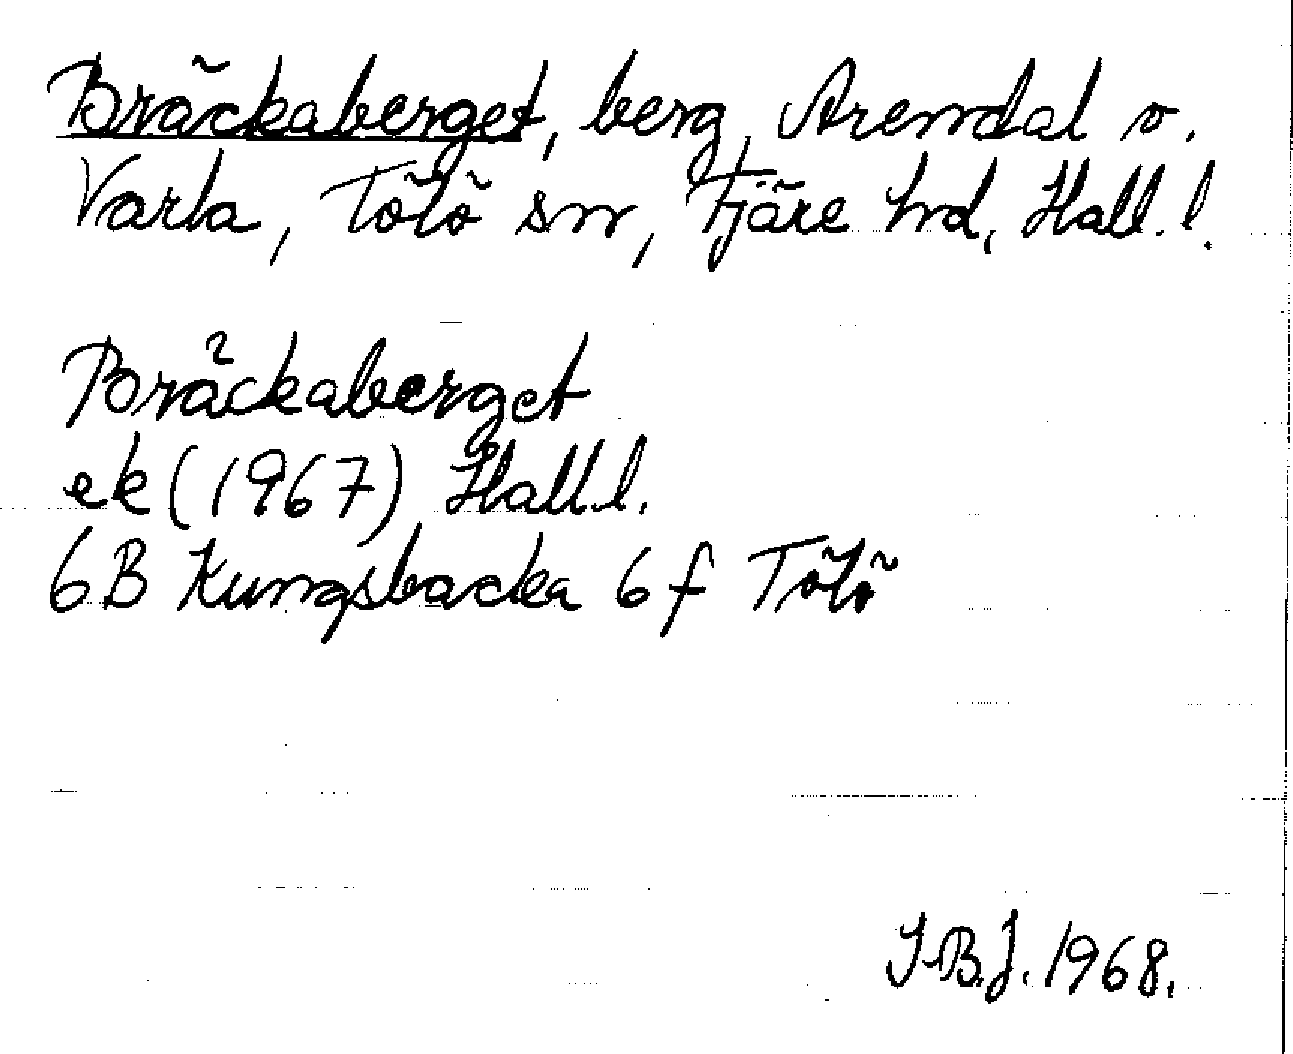 Bräckaberget, berg, Arendal o.
Varla, Tölö sn, Fjäre hd, Hall.l.
Bräckaberget
ek (1967) Hall.l.
6B Kungsbacka 6f Tölö
I.B.J. 1968.